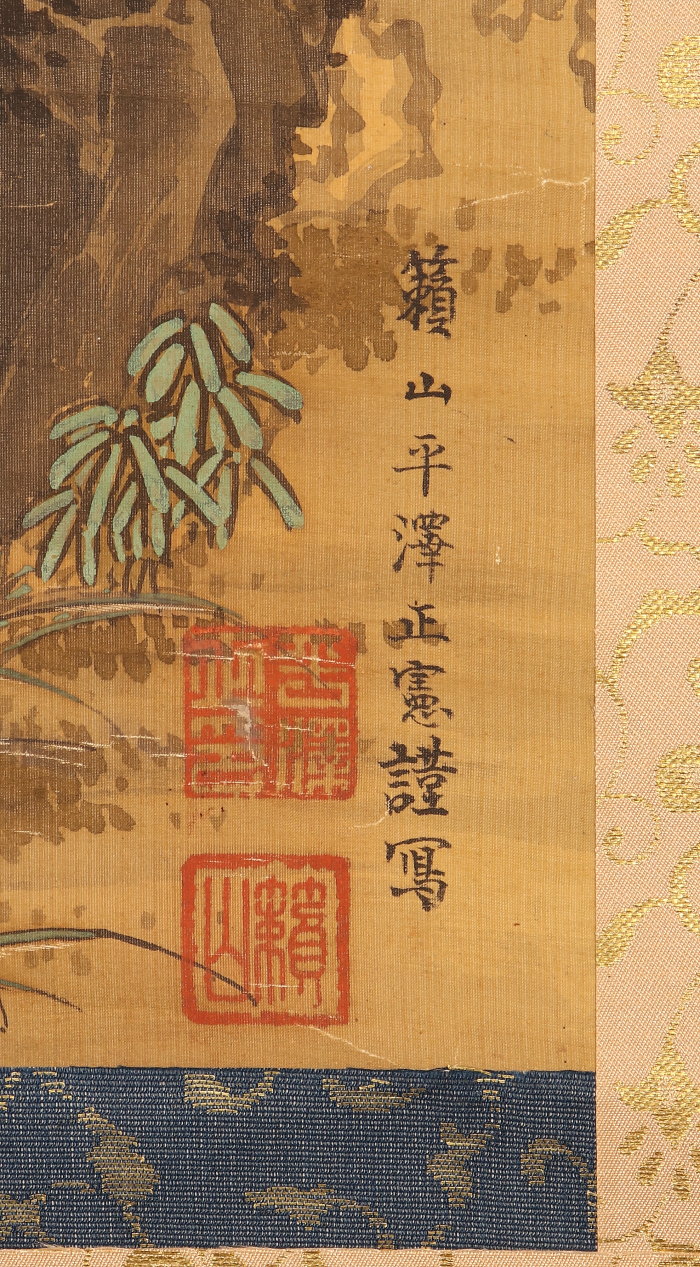 籟山平澤正憲謹寫
平澤
正印
籟山